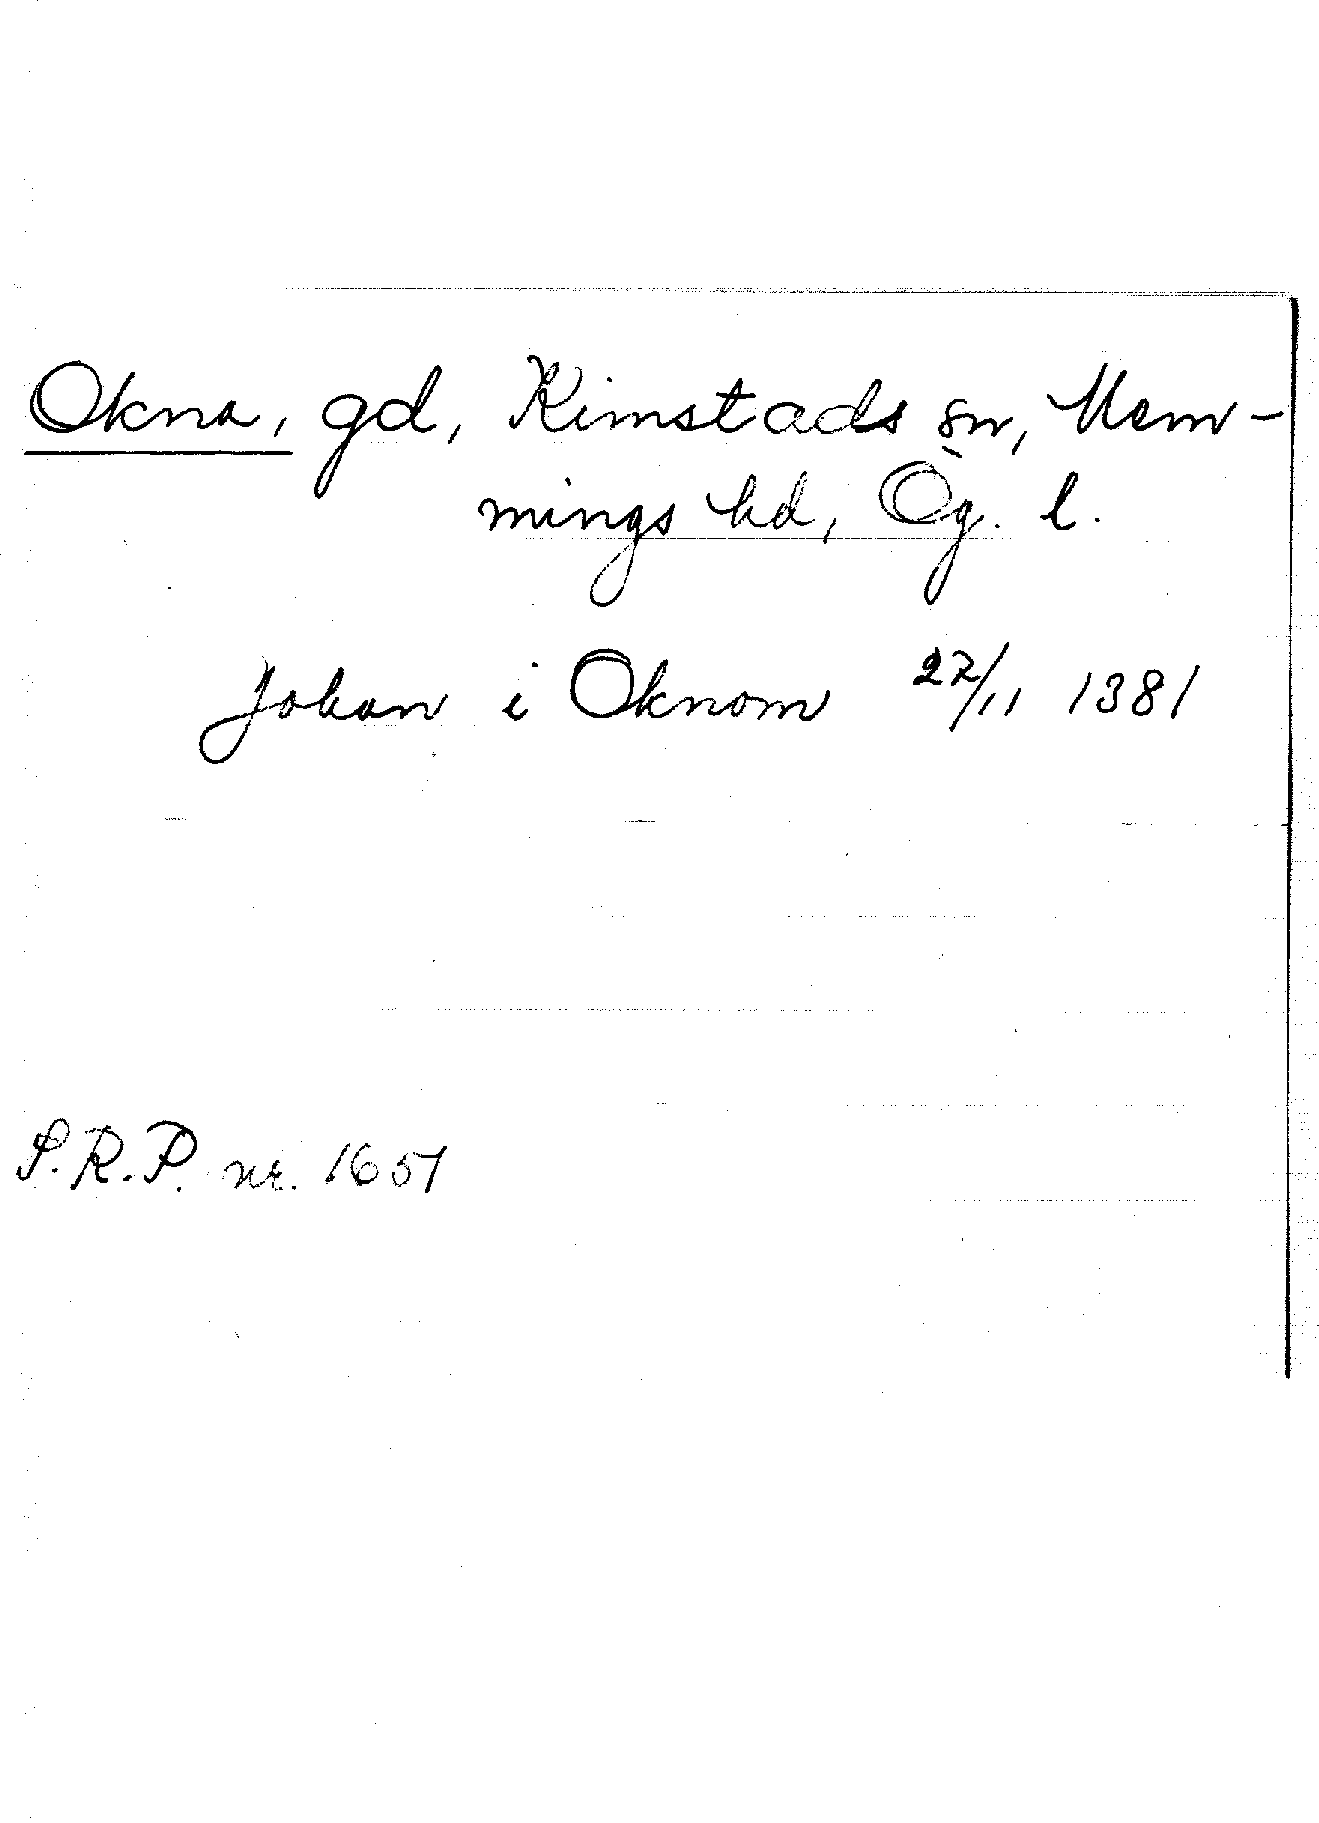 Okna, gd, Kimstads sn, Mem-
mings hd, Ög. l.
Johan i Oknom 22/11 1381
S.R.P. nr. 1651